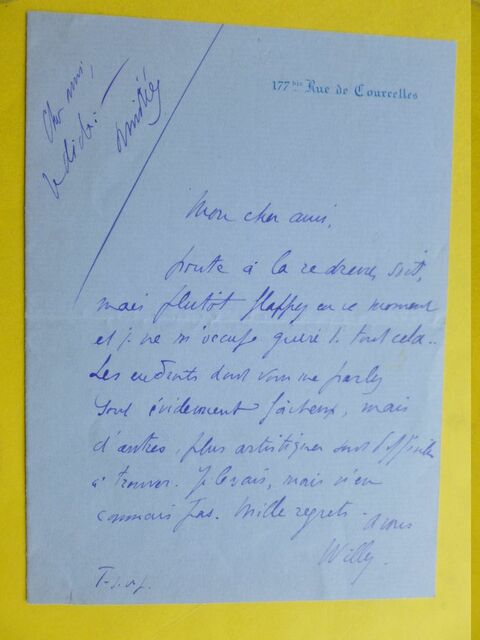 177 bis Rue de Courcelles
Cher ami,
amitiés
Mon cher ami,
à la
mais plutôt flappy en ce moment
et je ne m'occupe guère de tout cela..
Les endroits dont vous me parlez
sont évidemment fâcheux, mais
d'autres, plus artistiques sont difficiles
à trouver. Je le sais, mais n'en
connais pas. Mille regrets.
A vous
Willy.